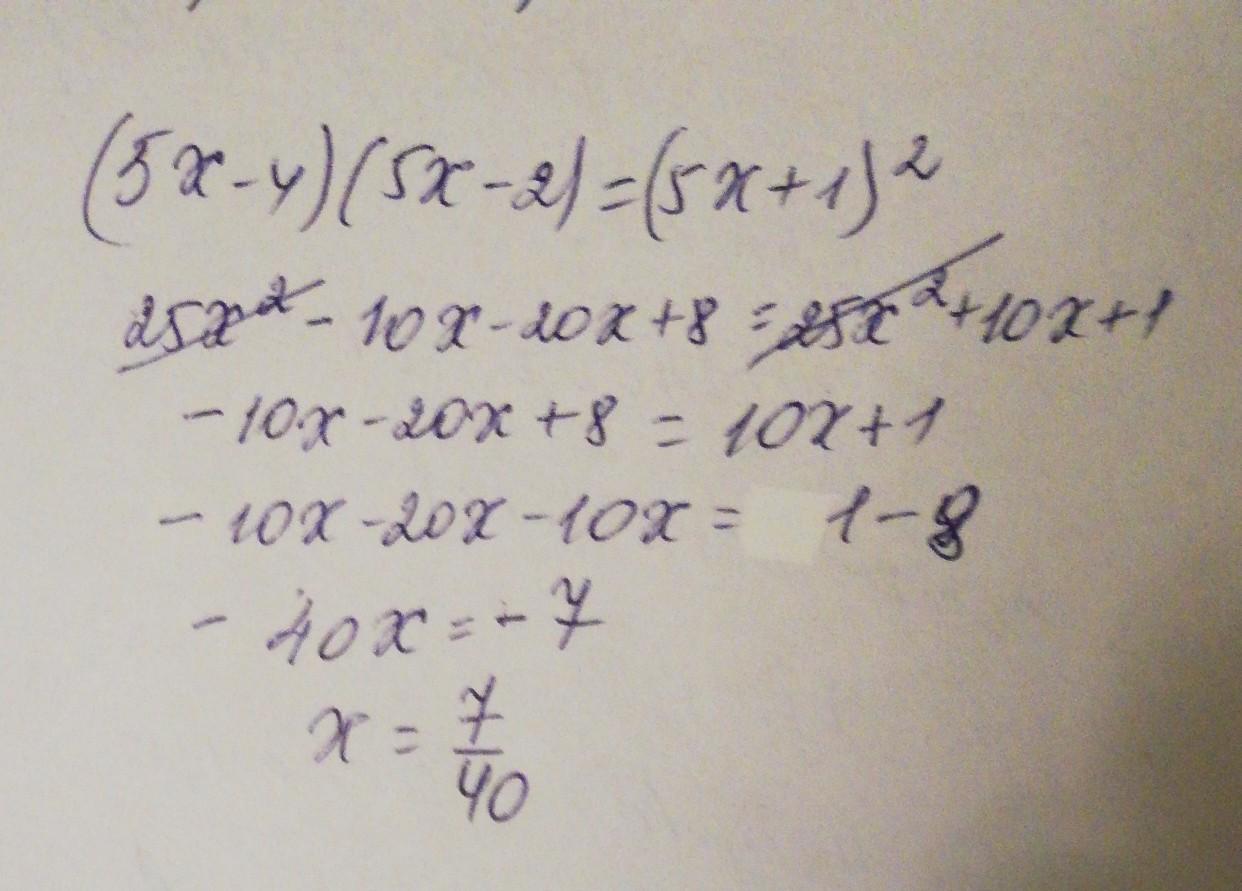 (5x-4)(5x-2)=(5x+1)²
25x²-10x-20x+8=25x²+10x+1
-10x-20x+8=10x+1
-10x-20x-10x=1-8
-40x=-7
x=7/40